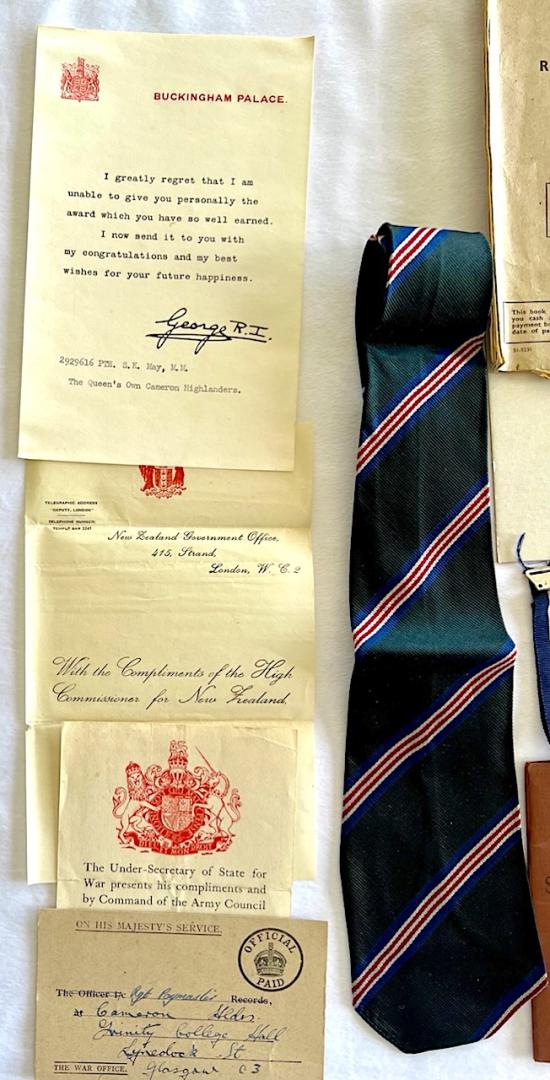 BUCKINGHAM PALACE.
I greatly regret that I am
unable to give you personally the
award which you have so well earned.
I now send it to you with
my congratulations and my best
wishes for your future happiness.
George R.I.
2929616 PTE. S.K. May, M.M.
The Queen's Own Cameron Highlanders.
TELEGRAPHIC ADDRESS
"DEPUTY, LONDON"
TELEPHONE NUMBER:
TEMPLE BAR 3241
New Zealand Government Office,
415, Strand,
London, W. C. 2
With the Compliments of the High
Commissioner for New Zealand.
DIEU ET MON DROIT
The Under-Secretary of State for
War presents his compliments and
by Command of the Army Council
ON HIS MAJESTY'S SERVICE.
OFFICIAL
PAID
The Officer i/c Rgt Paymaster Records,
Cameron Hldrs.
Trinity College Hall
Lynedoch St.
THE WAR OFFICE. Glasgow C 3
R
This book
you cash
payment
date of pa